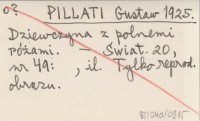 o? PILLATI Gustaw 1925.
Dziewczyna z polnemi
różami. – Świat. 20,
nr 49: , il. Tylko reprod.
obrazu.